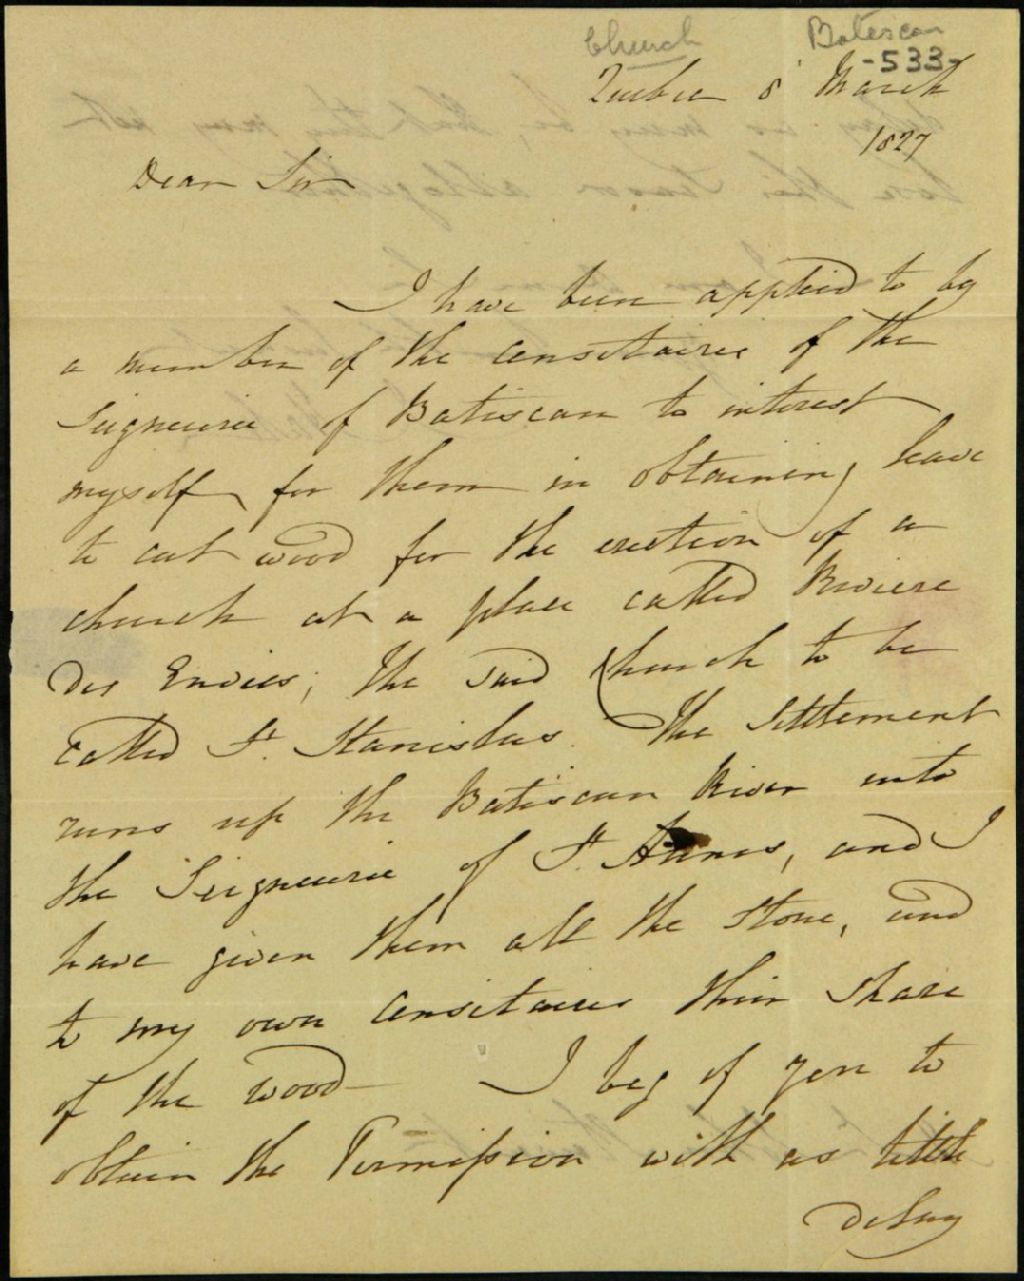 Church Batescan
-533-
Quebec 8 March
1827
Dear Sir
I have been applied to by
a member of the Censitaires of the
Seigneurie of Batiscan to interest
myself for them in obtaining leave
to cut wood for the erection of a
church at a place called Riviere
des Envies; the said Church to be
called St. Stanislus. The Settlement
runs up the Batiscan River into
the Seigneurie of St. Annes, and I
have given them all the Stone, and
to my own Censitaires their share
of the wood— I beg of you to
obtain the Permission with as little
delay